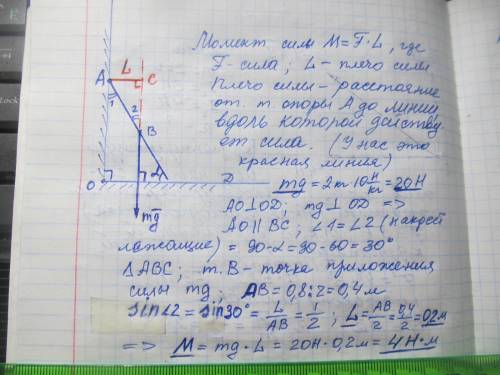 Момент силы M=F·L, где
F-сила; L-плечо силы
плечо силы-расстояние
от т. опоры A до линии,
вдоль которой действу
ет сила. (У нас это
красная линия)
A
L
C
1
2
B
α
O
D
mg
mg = 2кг 10 Н/кг = 20Н
AO⊥OD; mg⊥OD =>
AO||BC; ∠1=∠2 (накрест
лежащие) = 90-α=90-60=30°
ΔABC; т.B-точка приложения
силы mg; AB=0,8:2=0,4м
sin∠2 = sin30° = L/AB = 1/2; L=AB/2=0,4/2=0,2м
=> M = mg·L = 20Н·0,2м=4Н·м